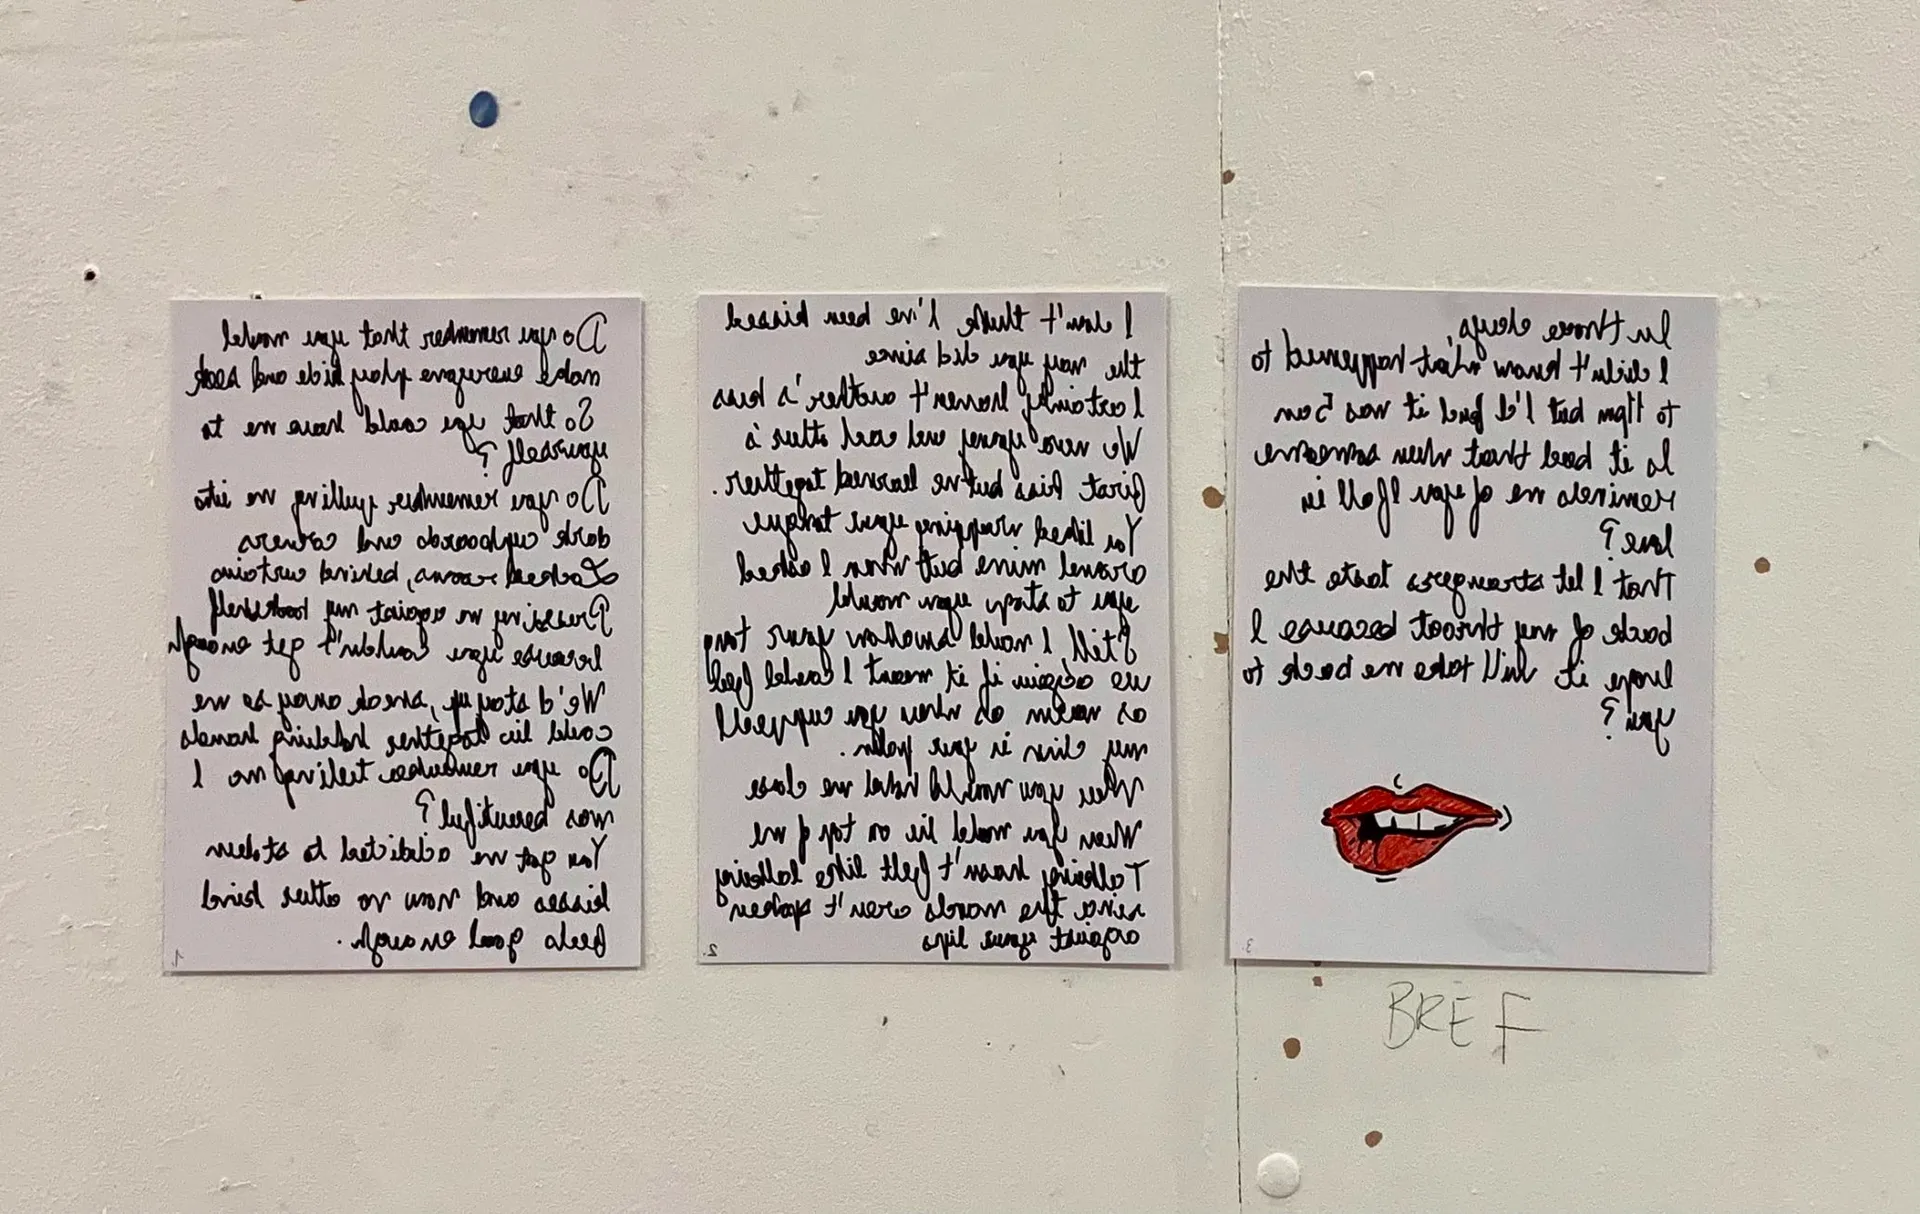 Do you remember that you would
make everyone play hide and seek
So that you could have me to
yourself?
Do you remember pulling me into
dark cupboards and corners
Locked rooms, behind curtains
Pressing me against my bookshelf
because you couldn't get enough
We'd stay up, sneak away so we
could lie together holding hands
Do you remember telling me I
was beautiful?
You got me addicted to stolen
kisses and now no other kind
feels good enough.
1.
I don't think I've been kissed
the way you did since
I certainly haven't another's kiss
We were young and each other's
first kiss but we learned together.
You liked wrapping your tongue
around mine but when I asked
you to stop you would
Still I would swallow your
me again if it meant I could feel
as warm as when you cupped
my chin in your palm.
When you would hold me close
When you would lie on top of me
Talking hasn't felt like talking
since the words weren't spoken
against your lips
2.
In those days,
I didn't know what happened to
to 11pm but I'd feel it was 5am
Is it bad that when someone
reminds me of you I fall in
love?
That I let strangers taste the
back of my throat because I
hope it will take me back to
you?
3.
BREF